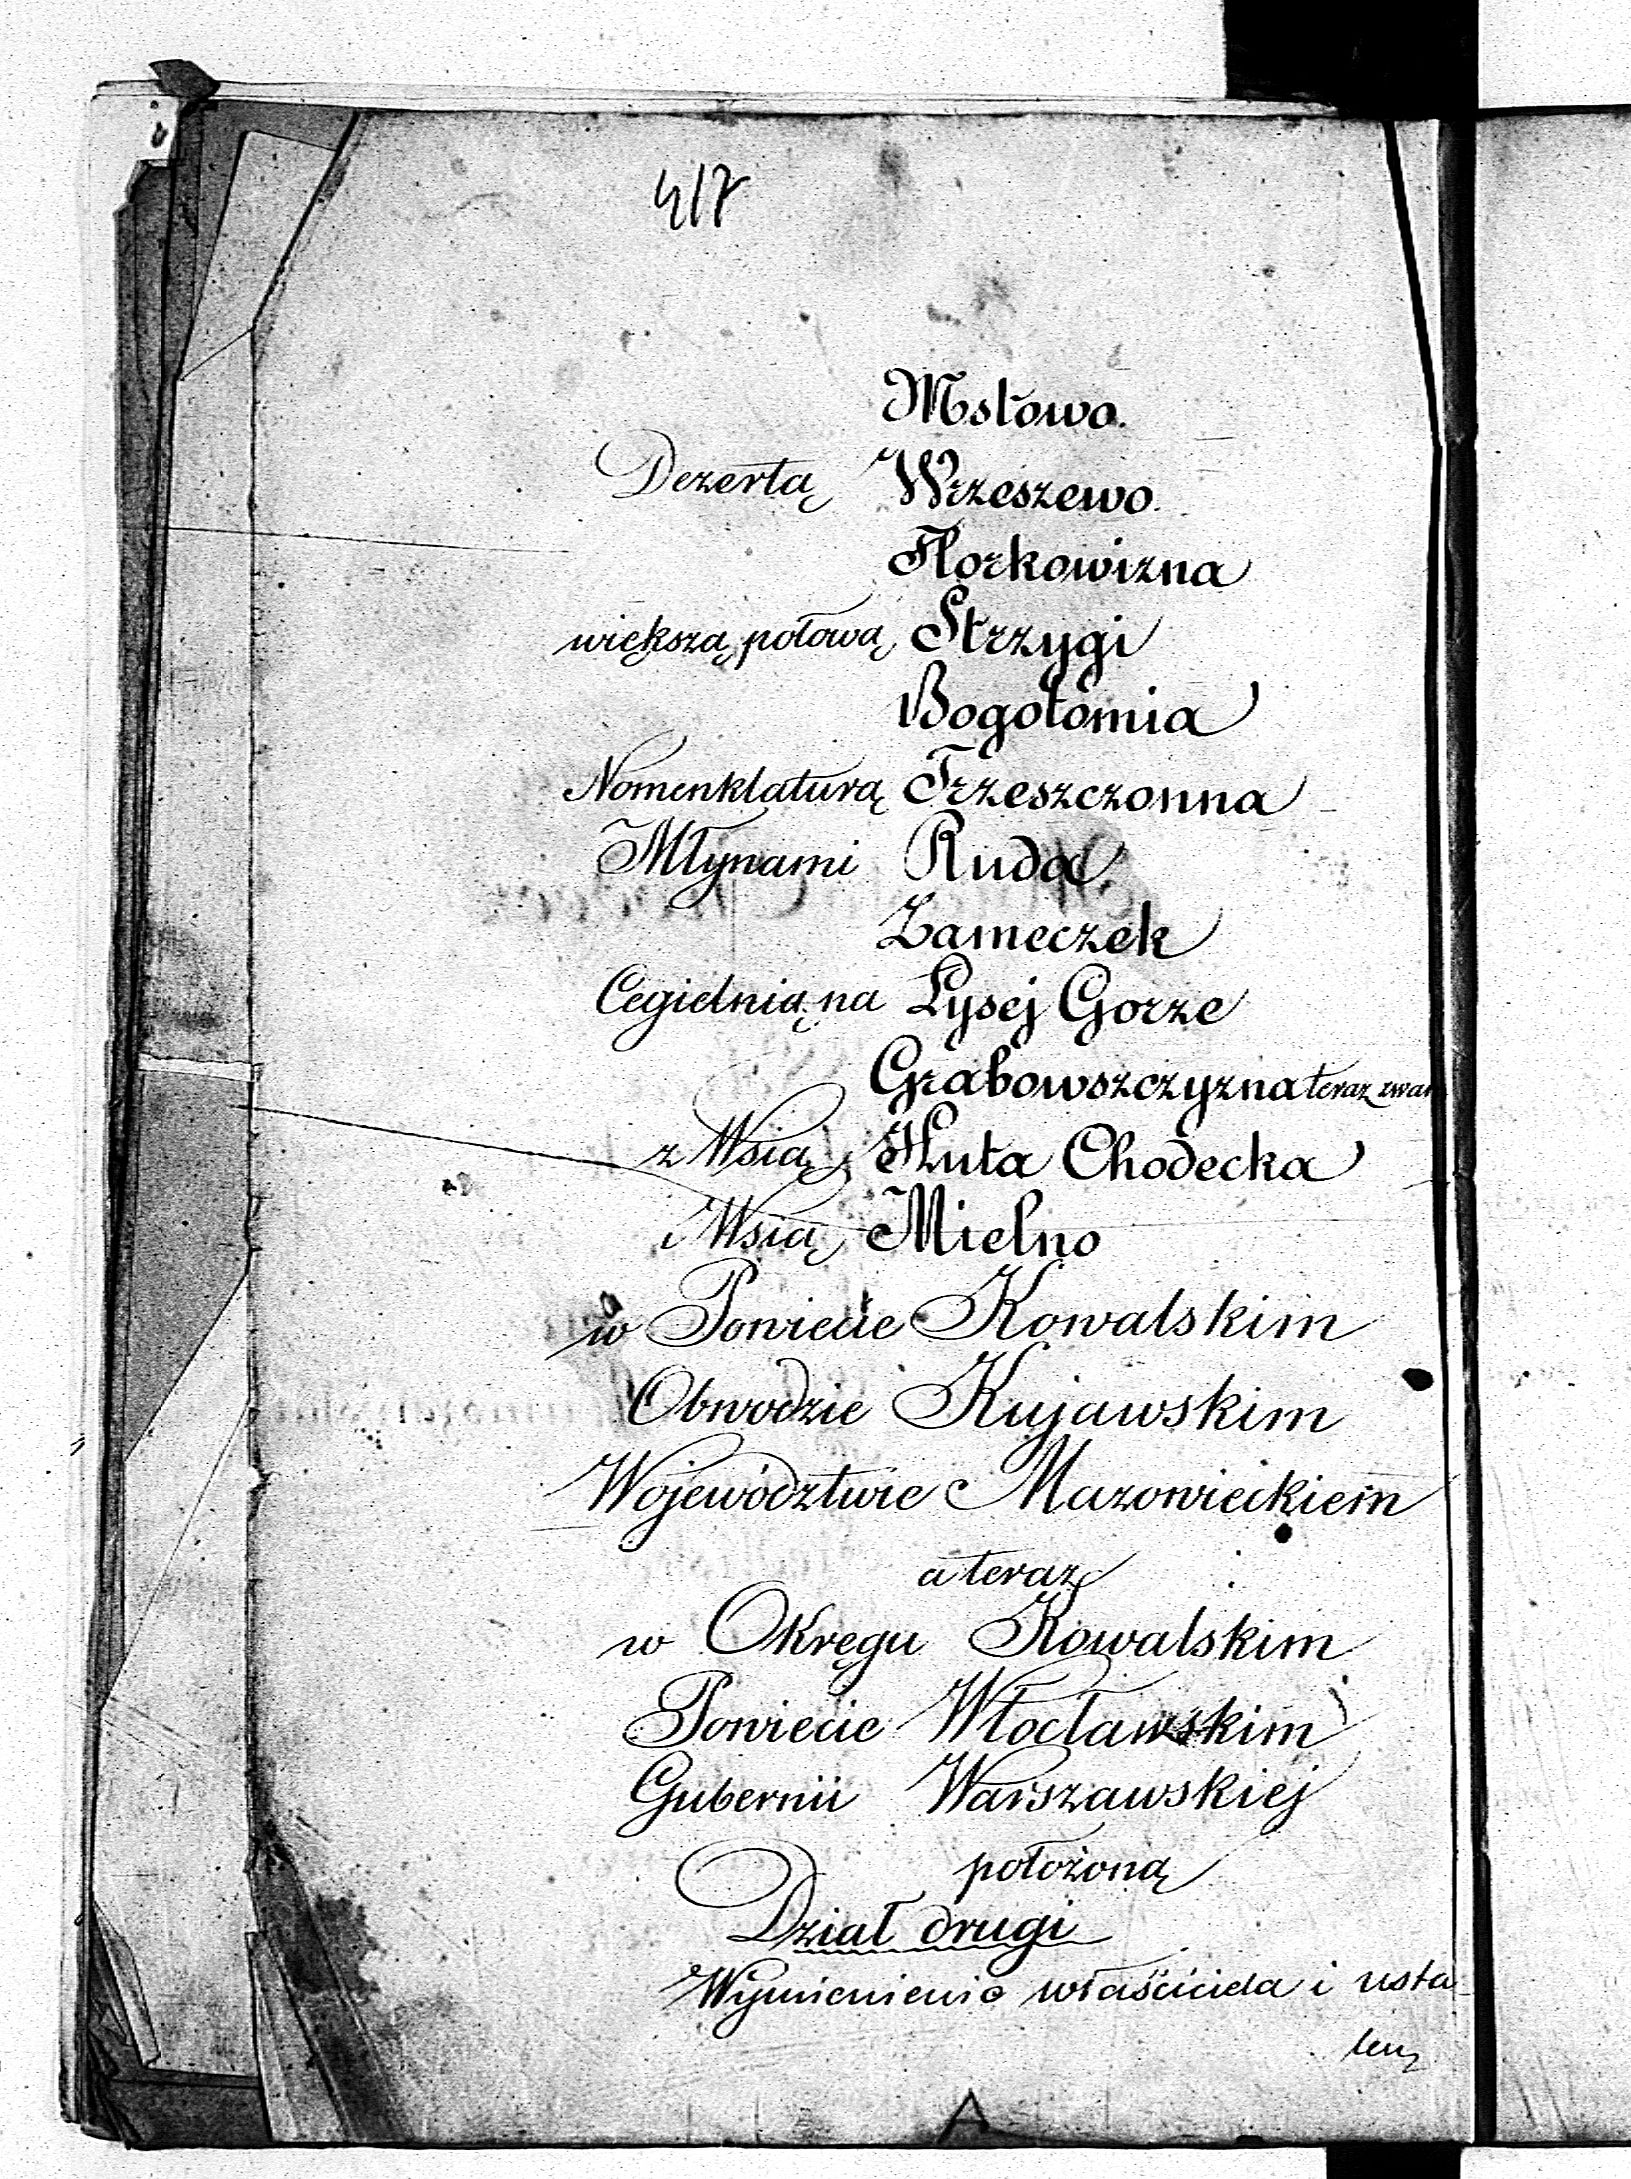 417
Mstowo.
Dezertą Wrzeszewo.
Florkowizna
większą połową Strzygi
Bogołomia
Nomenklaturą Trzeszczonna
Młynami Ruda
Zameczek
Cegielnią na Łysej Gorze
Grabowszczyzna teraz zwan
z Wsią Huta Chodecka
i Wsią Mielno
w Powiecie Kowalskim
Obwodzie Kujawskim
Województwie Mazowieckiem
a teraz
w Okręgu Kowalskim
Powiecie Włocławskim
Gubernii Warszawskiej
położoną
Dział drugi
Wymienienie właściciela i usta